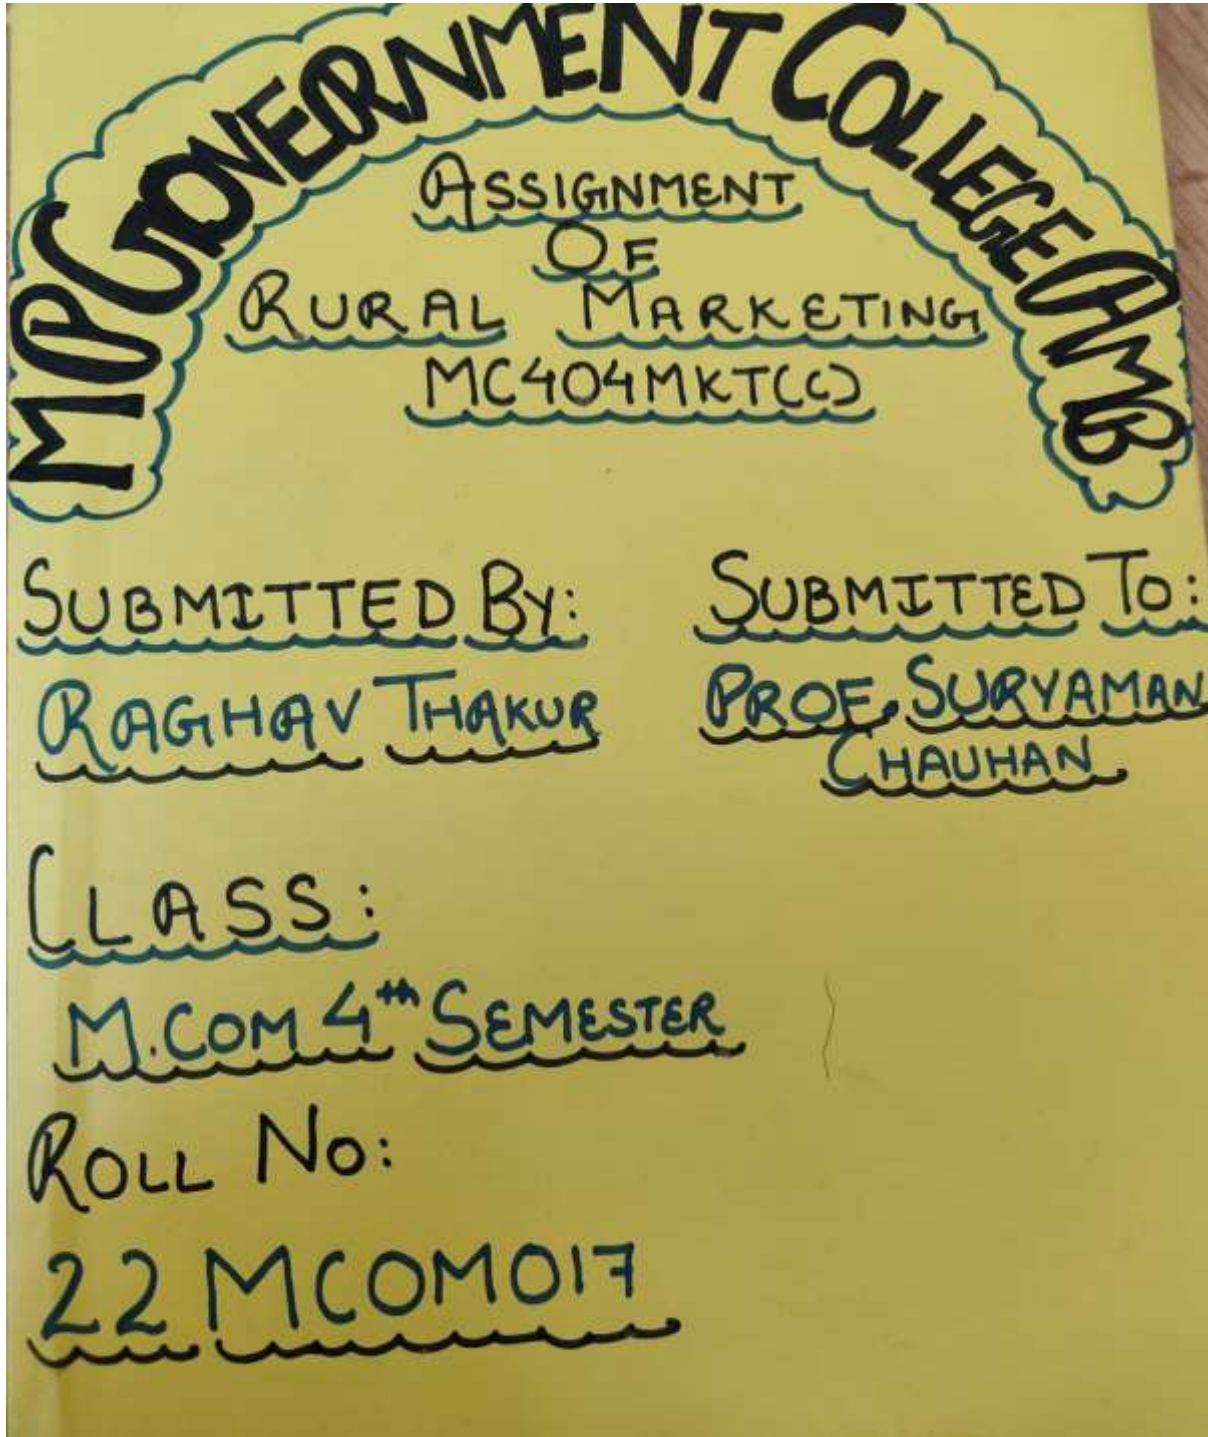 MP GOVERNMENT COLLEGE AMB
ASSIGNMENT
OF
RURAL MARKETING
MC404MKT(C)
SUBMITTED BY: SUBMITTED TO:
RAGHAV THAKUR PROF. SURYAMAN
CHAUHAN
CLASS:
M.COM 4th SEMESTER
ROLL NO:
22 MCOM017